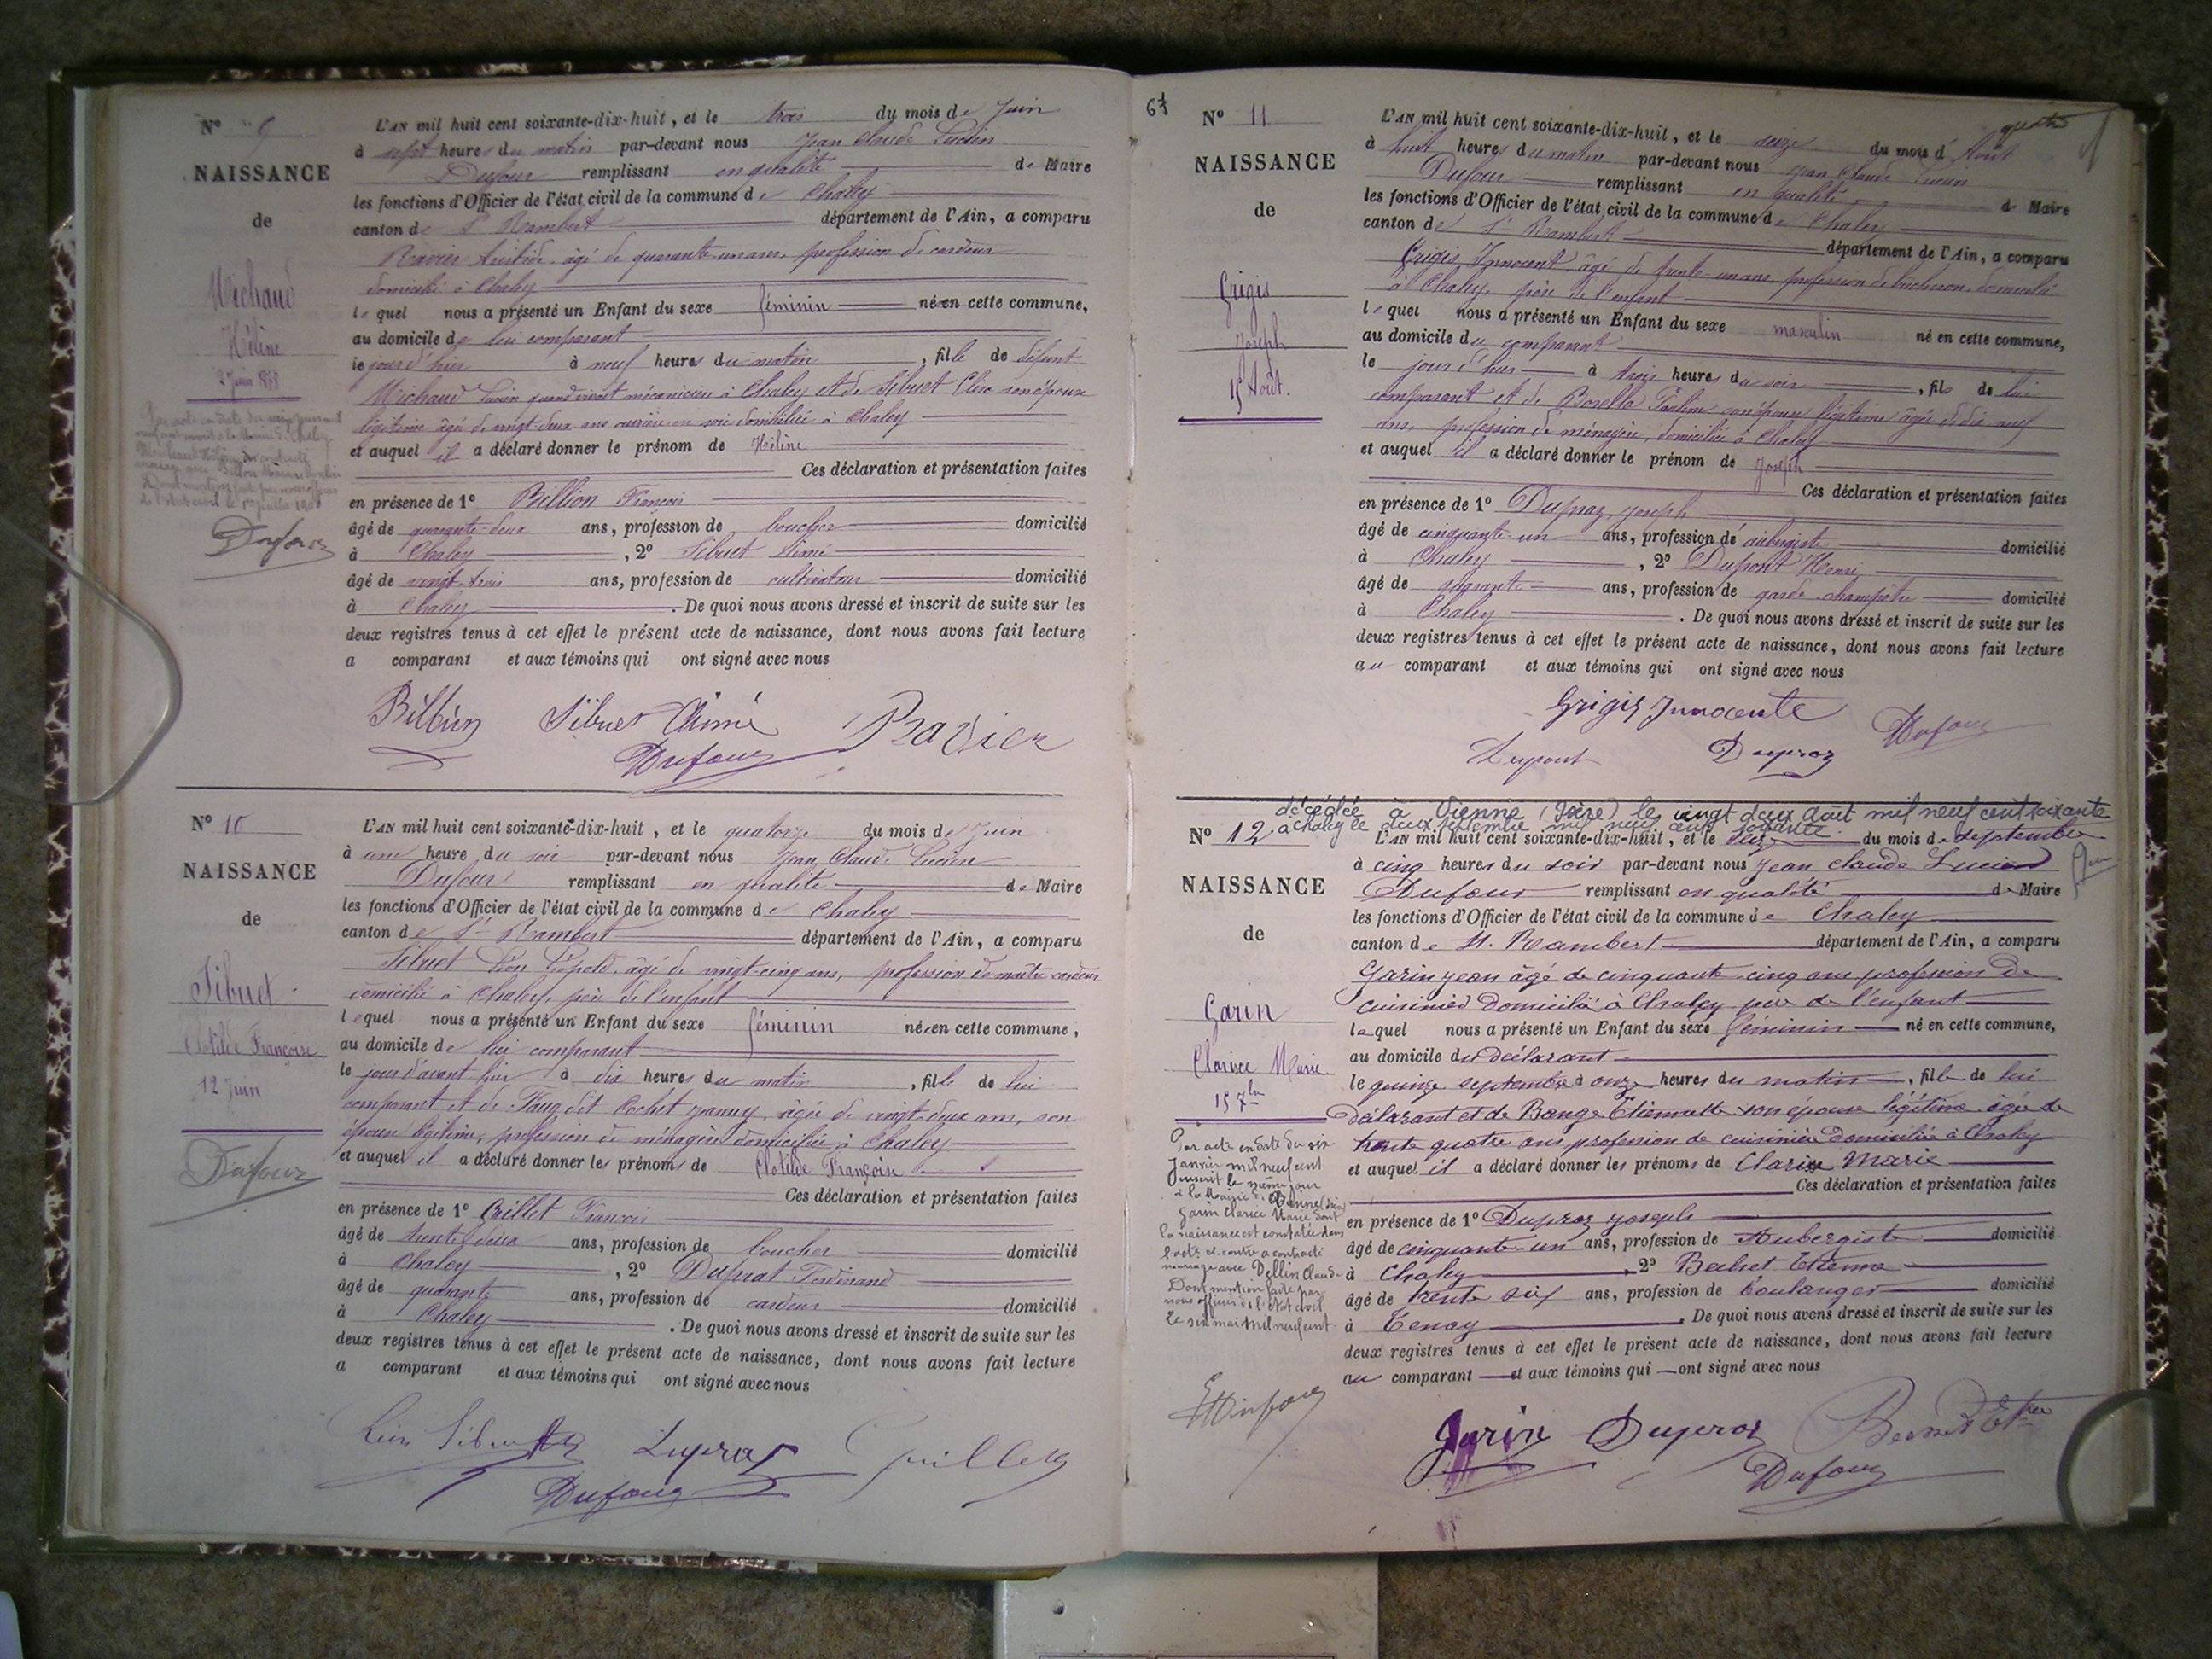 N° 9
NAISSANCE
de
Michaud
Hélène
2 Juin 1878
Dufour
L'AN mil huit cent soixante-dix-huit, et le trois du mois de Juin
à sept heures du matin par-devant nous Jean Claude Lucien
Dufour remplissant en qualité de Maire
les fonctions d'Officier de l'état civil de la commune de Chaley
canton de St Rambert département de l'Ain, a comparu
Ravier Aristide âgé de quarante un ans, profession de cardeur
domicilié à Chaley
lequel nous a présenté un Enfant du sexe féminin née en cette commune,
au domicile de lui comparant
le jour d'hier à neuf heures du matin, fille de défunt
Michaud Lucien quand vivait mécanicien à Chaley et de Sibuet Clisa son épouse
légitime âgée de vingt-deux ans ouvrière en soie domiciliée à Chaley
et auquel il a déclaré donner le prénom de Hélène
Ces déclaration et présentation faites
en présence de 1° Billion François
âgé de quarante-deux ans, profession de boucher domicilié
à Chaley, 2° Sibuet Aimé
âgé de vingt-trois ans, profession de cultivateur domicilié
à Chaley. De quoi nous avons dressé et inscrit de suite sur les
deux registres tenus à cet effet le présent acte de naissance, dont nous avons fait lecture
a comparant et aux témoins qui ont signé avec nous
Billion Sibuet Aimé Ravier
Dufour
N° 10
NAISSANCE
de
Sibuet
Clotilde Françoise
12 Juin
Dufour
L'AN mil huit cent soixante-dix-huit, et le quatorze du mois de Juin
à une heure du soir par-devant nous Jean Claude Lucien
Dufour remplissant en qualité de Maire
les fonctions d'Officier de l'état civil de la commune de Chaley
canton de St Rambert département de l'Ain, a comparu
Sibuet Léon Léopold, âgé de vingt-cinq ans, profession de maître cardeur
domicilié à Chaley, père de l'enfant
lequel nous a présenté un Enfant du sexe féminin née en cette commune,
au domicile de lui comparant
le jour d'avant hier à dix heures du matin, fille de lui
comparant et de Faug dit Cochet Jeanny, âgée de vingt-deux ans, son
épouse légitime, profession de ménagère domiciliée à Chaley
et auquel il a déclaré donner les prénoms de Clotilde Françoise
Ces déclaration et présentation faites
en présence de 1° Grillet François
âgé de trente deux ans, profession de boucher domicilié
à Chaley, 2° Duprat Ferdinand
âgé de quarante ans, profession de cardeur domicilié
à Chaley. De quoi nous avons dressé et inscrit de suite sur les
deux registres tenus à cet effet le présent acte de naissance, dont nous avons fait lecture
a comparant et aux témoins qui ont signé avec nous
Léon Sibuet Dupraz
Dufour
N° 11
NAISSANCE
de
Grigis
Joseph
15 Août.
L'AN mil huit cent soixante-dix-huit, et le seize du mois d'Août
à huit heures du matin par-devant nous Jean Claude Lucien
Dufour remplissant en qualité de Maire
les fonctions d'Officier de l'état civil de la commune de Chaley
canton de St Rambert département de l'Ain, a comparu
Grigis Innocent âgé de trente-un ans, profession de bucheron, domicilié
à Chaley, père de l'enfant
lequel nous a présenté un Enfant du sexe masculin né en cette commune,
au domicile du comparant
le jour d'hier à trois heures du soir, fils de lui
comparant et de Borella Pauline son épouse légitime âgée de dix neuf
ans, profession de ménagère, domiciliée à Chaley
et auquel il a déclaré donner le prénom de Joseph
Ces déclaration et présentation faites
en présence de 1° Dupraz Joseph
âgé de cinquante-un ans, profession de aubergiste domicilié
à Chaley, 2° Dupont Henri
âgé de quarante ans, profession de garde-champêtre domicilié
à Chaley. De quoi nous avons dressé et inscrit de suite sur les
deux registres tenus à cet effet le présent acte de naissance, dont nous avons fait lecture
au comparant et aux témoins qui ont signé avec nous
Grigis Innocente Dufour
Dupont Dupraz
décédée à Vienne (Isère) le vingt deux août mil neuf cent soixante
à Chaley le deux septembre mil neuf cent soixante
N° 12
NAISSANCE
de
Garin
Clarice Marie
15 7bre
Par acte en date du six
janvier mil neuf cent
inscrit le même jour
à la Mairie de Vienne (Isère)
Garin Clarice Marie dont
la naissance est constatée dans
l'acte ci-contre a contracté
mariage avec Dellin Claude
Dont mention faite par
nous officier de l'état civil
le six mai mil neuf cent
L'AN mil huit cent soixante-dix-huit, et le seize du mois de septembre
à cinq heures du soir par-devant nous Jean Claude Lucien
Dufour remplissant en qualité de Maire
les fonctions d'Officier de l'état civil de la commune de Chaley
canton de St. Rambert département de l'Ain, a comparu
Garin Jean âgé de cinquante-cinq ans profession de
cuisinier domicilié à Chaley père de l'enfant
lequel nous a présenté un Enfant du sexe féminin né en cette commune,
au domicile du déclarant
le quinze septembre à onze heures du matin, fille de lui
déclarant et de Bange Etiennette son épouse légitime âgée de
trente quatre ans profession de cuisinière domiciliée à Chaley
et auquel il a déclaré donner les prénoms de Clarisse Marie
Ces déclaration et présentation faites
en présence de 1° Dupraz Joseph
âgé de cinquante-un ans, profession de Aubergiste domicilié
à Chaley, 2° Etienne
âgé de trente six ans, profession de boulanger domicilié
à Tenay. De quoi nous avons dressé et inscrit de suite sur les
deux registres tenus à cet effet le présent acte de naissance, dont nous avons fait lecture
au comparant et aux témoins qui ont signé avec nous
Garin Dupraz
Dufour